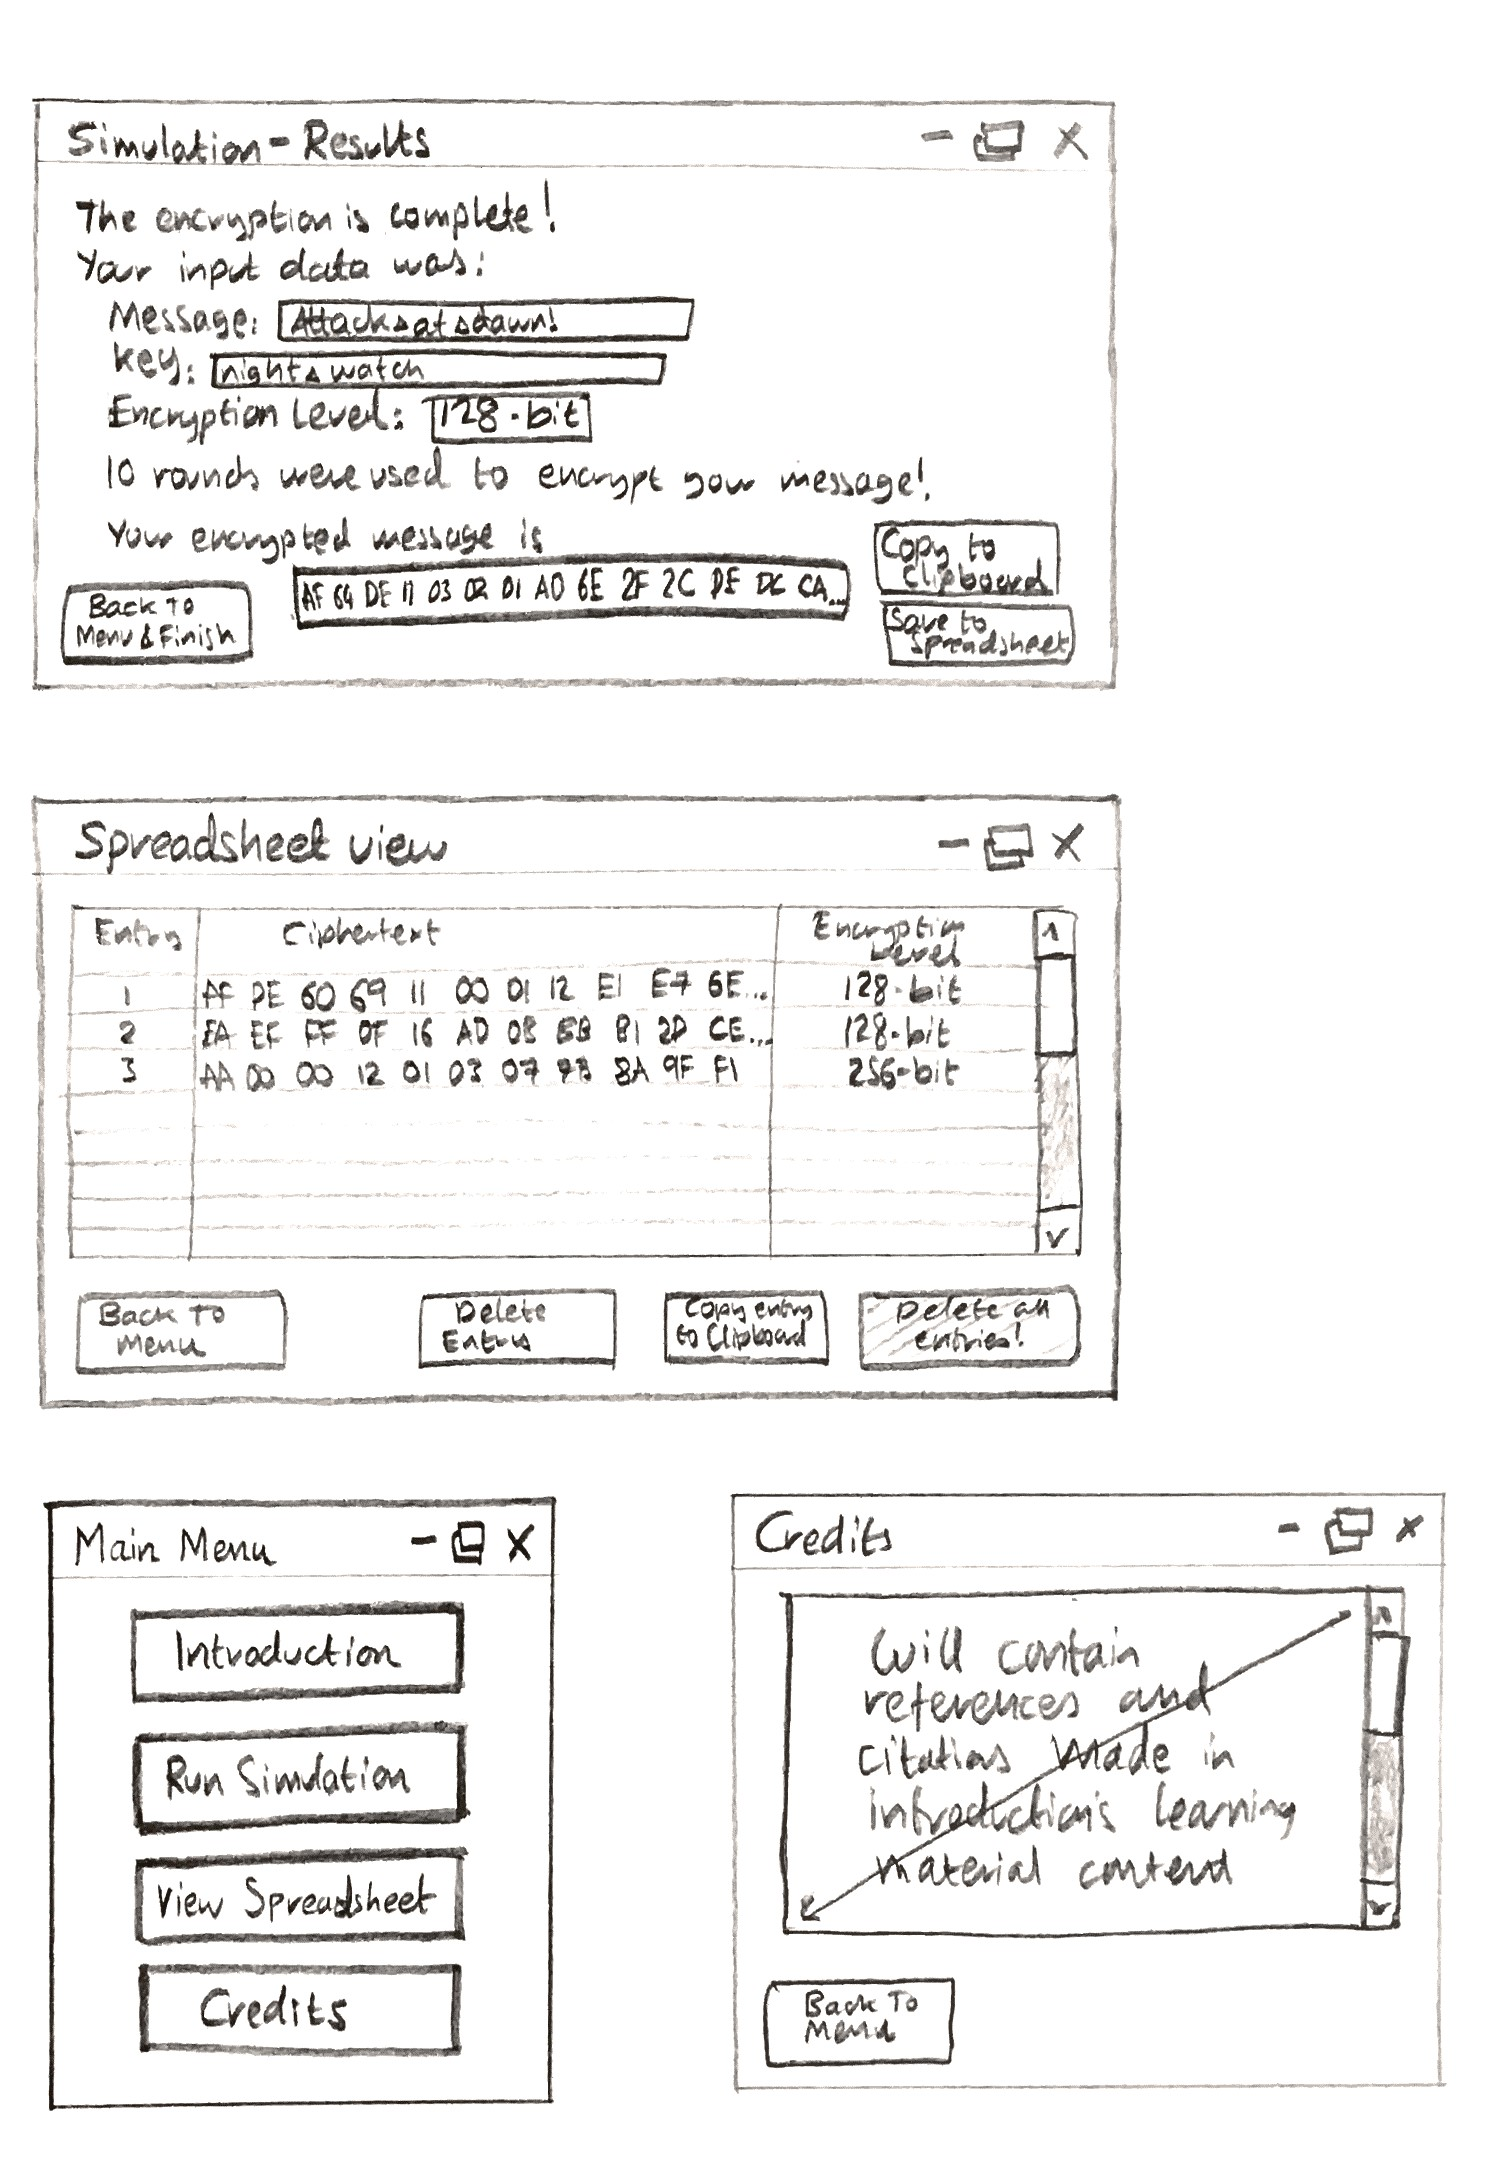 Simulation - Results
The encryption is complete!
Your input data was:
Message: Attack▵at▵dawn!
Key: night▵watch
Encryption Level: 128-bit
10 rounds were used to encrypt your message!
Your encrypted message is
AF 64 DE 11 03 02 01 A0 6E 2F 2C DE DC CA...
Copy to
Clipboard
Save to
Spreadsheet
Back To
Menu & Finish
Spreadsheet view
Entry Ciphertext Encryption
Level
1 AF DE 60 69 11 00 01 12 E1 E7 6E... 128-bit
2 EA EF FF 0F 16 AD 0B BB B1 2D CE... 128-bit
3 AA DD 00 12 01 03 07 9B 8A 9F F1 256-bit
Back To
Menu
Delete
Entry
Copy entry
to Clipboard
Delete all
entries!
Main Menu
Introduction
Run Simulation
View Spreadsheet
Credits
Credits
Will contain
references and
citations made in
introduction's learning
material content
Back To
Menu